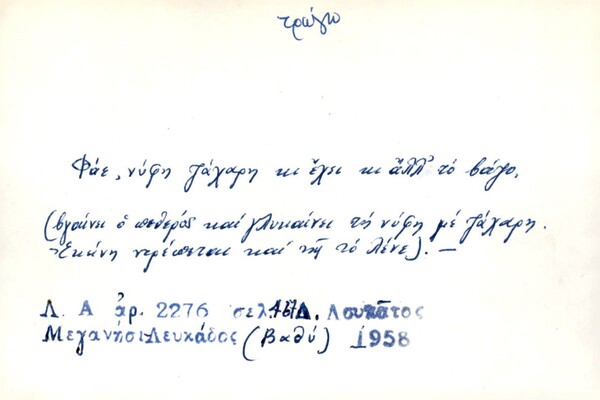 τρώγω
Φάε, νύφη ζάχαρη κι ἔχει κι ἄλλ' τό βάζο.
(βγαίνει ὁ πεθερός καί γλυκαίνει τή νύφη μέ ζάχαρη.
Ἐκείνη ντρέπεται καί τῆς τό λένε). —
Λ. Α ἀρ. 2276 σελ. Δ. Λουκᾶτος
Μεγανήσι Λευκάδος (Βαθύ) 1958